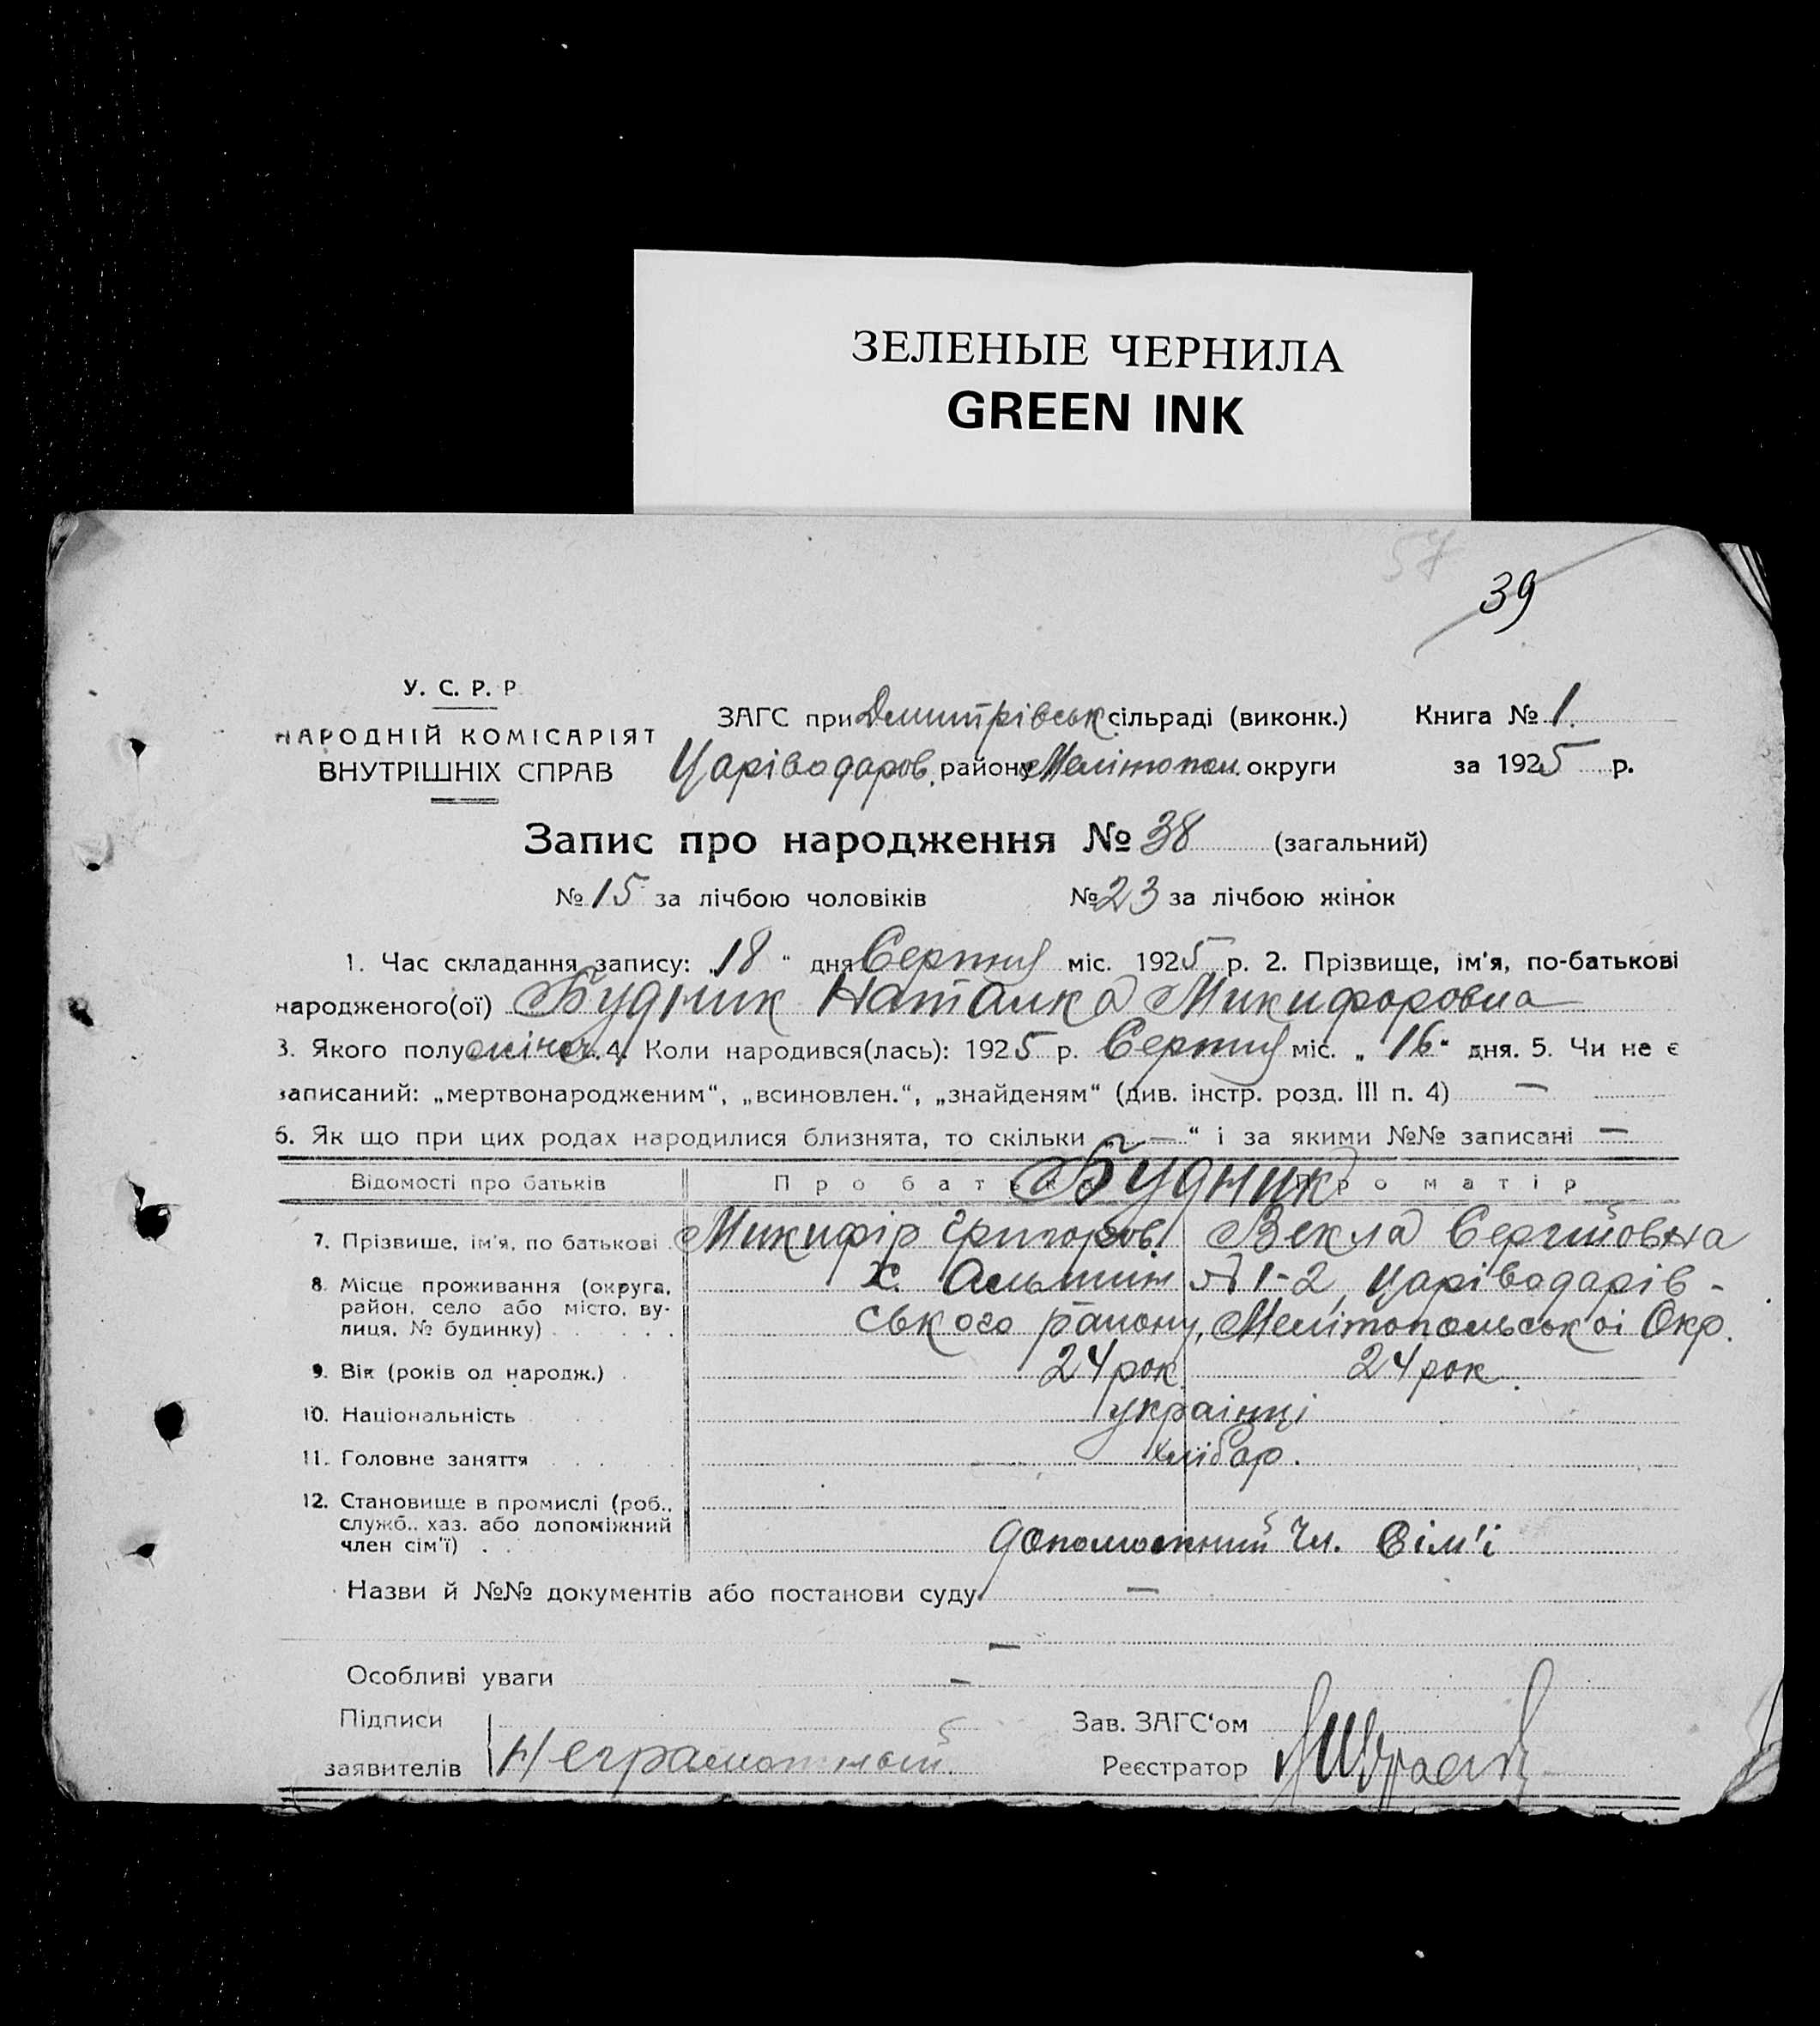 ЗЕЛЕНЫЕ ЧЕРНИЛА
GREEN INK
57
39
У. С. Р. Р
НАРОДНІЙ КОМІСАРІЯТ
ВНУТРІШНІХ СПРАВ
ЗАГС при Дмитрівськ. сільраді (виконк.) Книга № 1.
Царіводаров. району Мелітопол. округи за 1925 р.
Запис про народження № 38 (загальний)
№ 15 за лічбою чоловіків № 23 за лічбою жінок
1. Час складання запису: „18“ дня Серпня міс. 1925 р. 2. Прізвище, ім'я, по-батькові
народженого(ої) Будник Наталка Микифоровна
3. Якого полу жіноч. 4. Коли народився(лась): 1925 р. Серпня міс. „16“ дня. 5. Чи не є
записаний: „мертвонародженим“, „всиновлен.“, „знайденям“ (див. інстр. розд. III п. 4) —
6. Як що при цих родах народилися близнята, то скільки „—“ і за якими №№ записані —
Відомості про батьків Про батька Про матір
Будник
7. Прізвише, ім'я, по батькові Микифір Григоров. Векла Сергійовна
8. Місце проживання (округа, район, село або місто, вулиця, № будинку)
х. А 1-2, Царіводарів-
ського району, Мелітопольськоі Окр.
9. Вік (років од народж.) 24 рок. 24 рок.
10. Національність українці
11. Головне заняття — хлібор.
12. Становище в промислі (роб.,
служб., хаз. або допоміжний
член сім'ї) допоможний Чл. Сім'і
Назви й №№ документів або постанови суду —
—
Особливі уваги —
Підписи
заявителів Неграмотный
Зав. ЗАГС'ом
Реєстратор